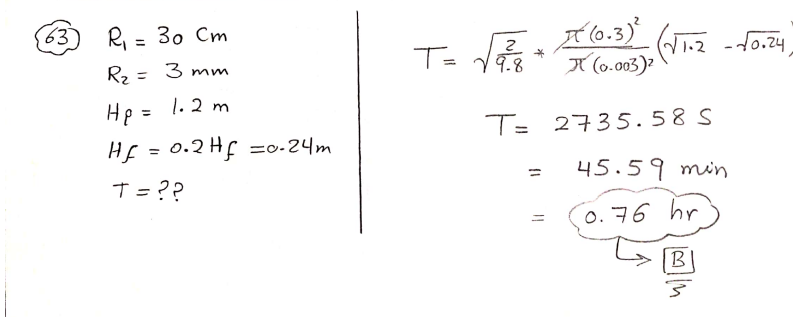 63 R₁ = 30 Cm
R₂ = 3 mm
Hp = 1.2 m
Hf = 0.2 Hf = 0.24m
T = ??
T = √(2/9.8) * π(0.3)²/π(0.003)² (√1.2 - √0.24)
T = 2735.58 S
= 45.59 min
= 0.76 hr
B